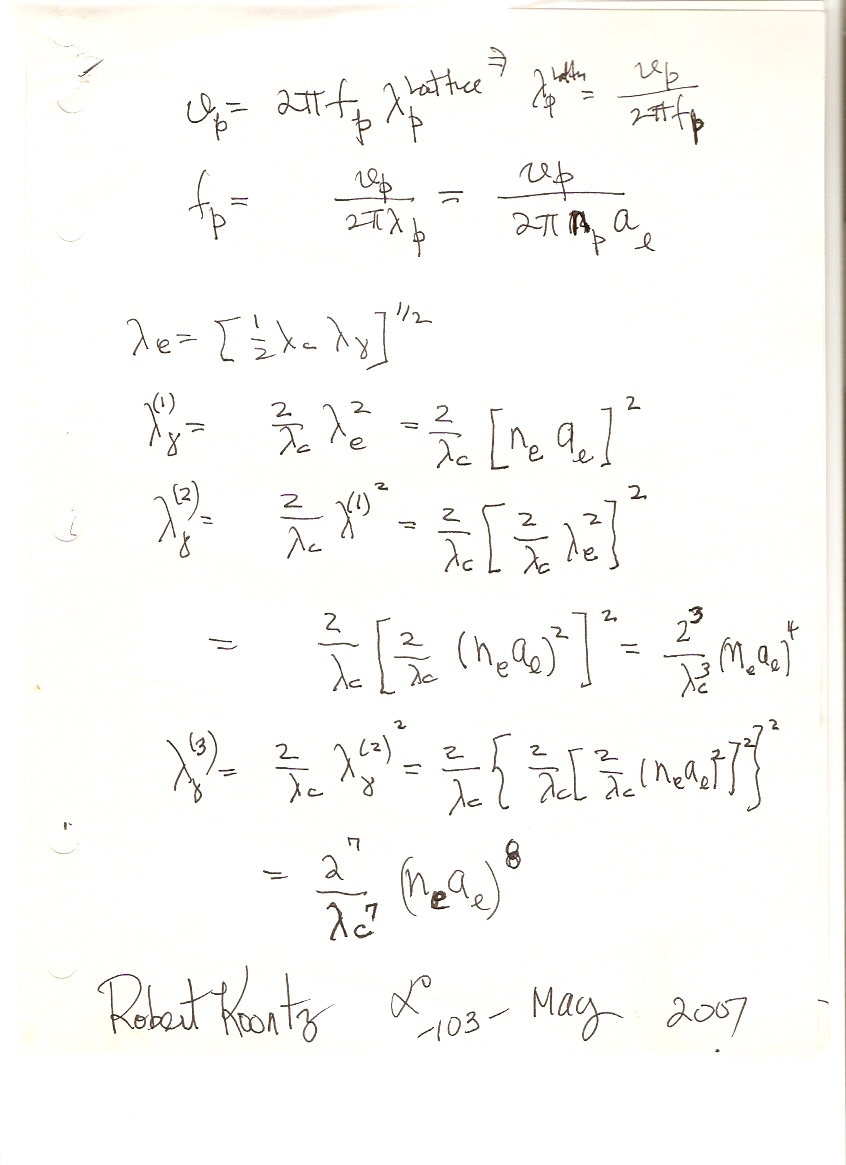 υ_p = 2πf_p λ_p^Lattice ⇒ λ_p^Lattice = υ_p / 2πf_p
f_p = υ_p / 2πλ_p = υ_p / 2π n_p a_e
λ_e = [½ λ_c λ_γ]^1/2
λ_γ^(1) = 2/λ_c λ_e^2 = 2/λ_c [n_e a_e]^2
λ_γ^(2) = 2/λ_c λ^(1)^2 = 2/λ_c [2/λ_c λ_e^2]^2
= 2/λ_c [2/λ_c (n_e a_e)^2]^2 = 2^3/λ_c^3 (n_e a_e)^4
λ_γ^(3) = 2/λ_c λ_γ^(2)^2 = 2/λ_c {2/λ_c [2/λ_c (n_e a_e)^2]^2}^2
= 2^7/λ_c^7 (n_e a_e)^8
Robert Koontz α^0 -103- May 2007